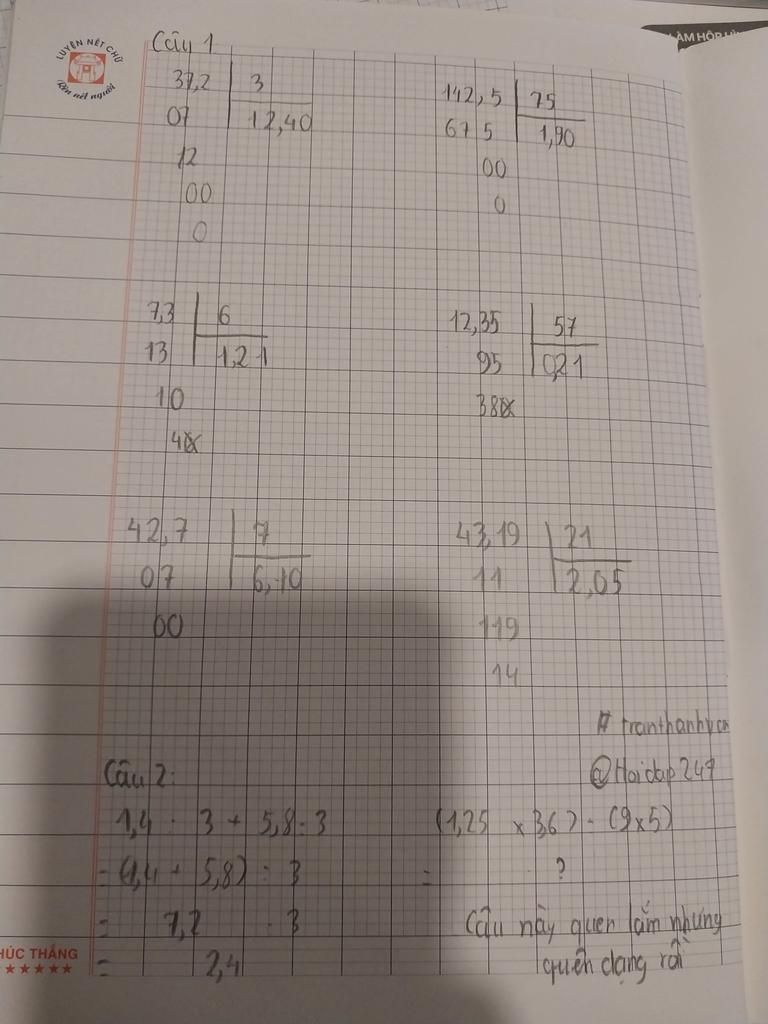 LUYỆN NẾT CHỮ
Rèn nết người
LÀM HỘP
Câu 1
37,2 3
07 12,40
12
00
0
142,5 75
67 5 1,90
00
0
7,3 6
13 1,21
10
4
12,35 57
95 0,21
38
42,7 7
07 6,10
00
43,19 21
11 2,05
119
14
# tranthanhvan
@Hoidap247
Câu 2:
1,4 : 3 + 5,8 : 3
= (1,4 + 5,8) : 3
= 7,2 : 3
= 2,4
(1,25 x 3,6) : (9 x 5)
= ?
Câu này quen lắm nhưng
quên dạng rồi
HÚC THẮNG